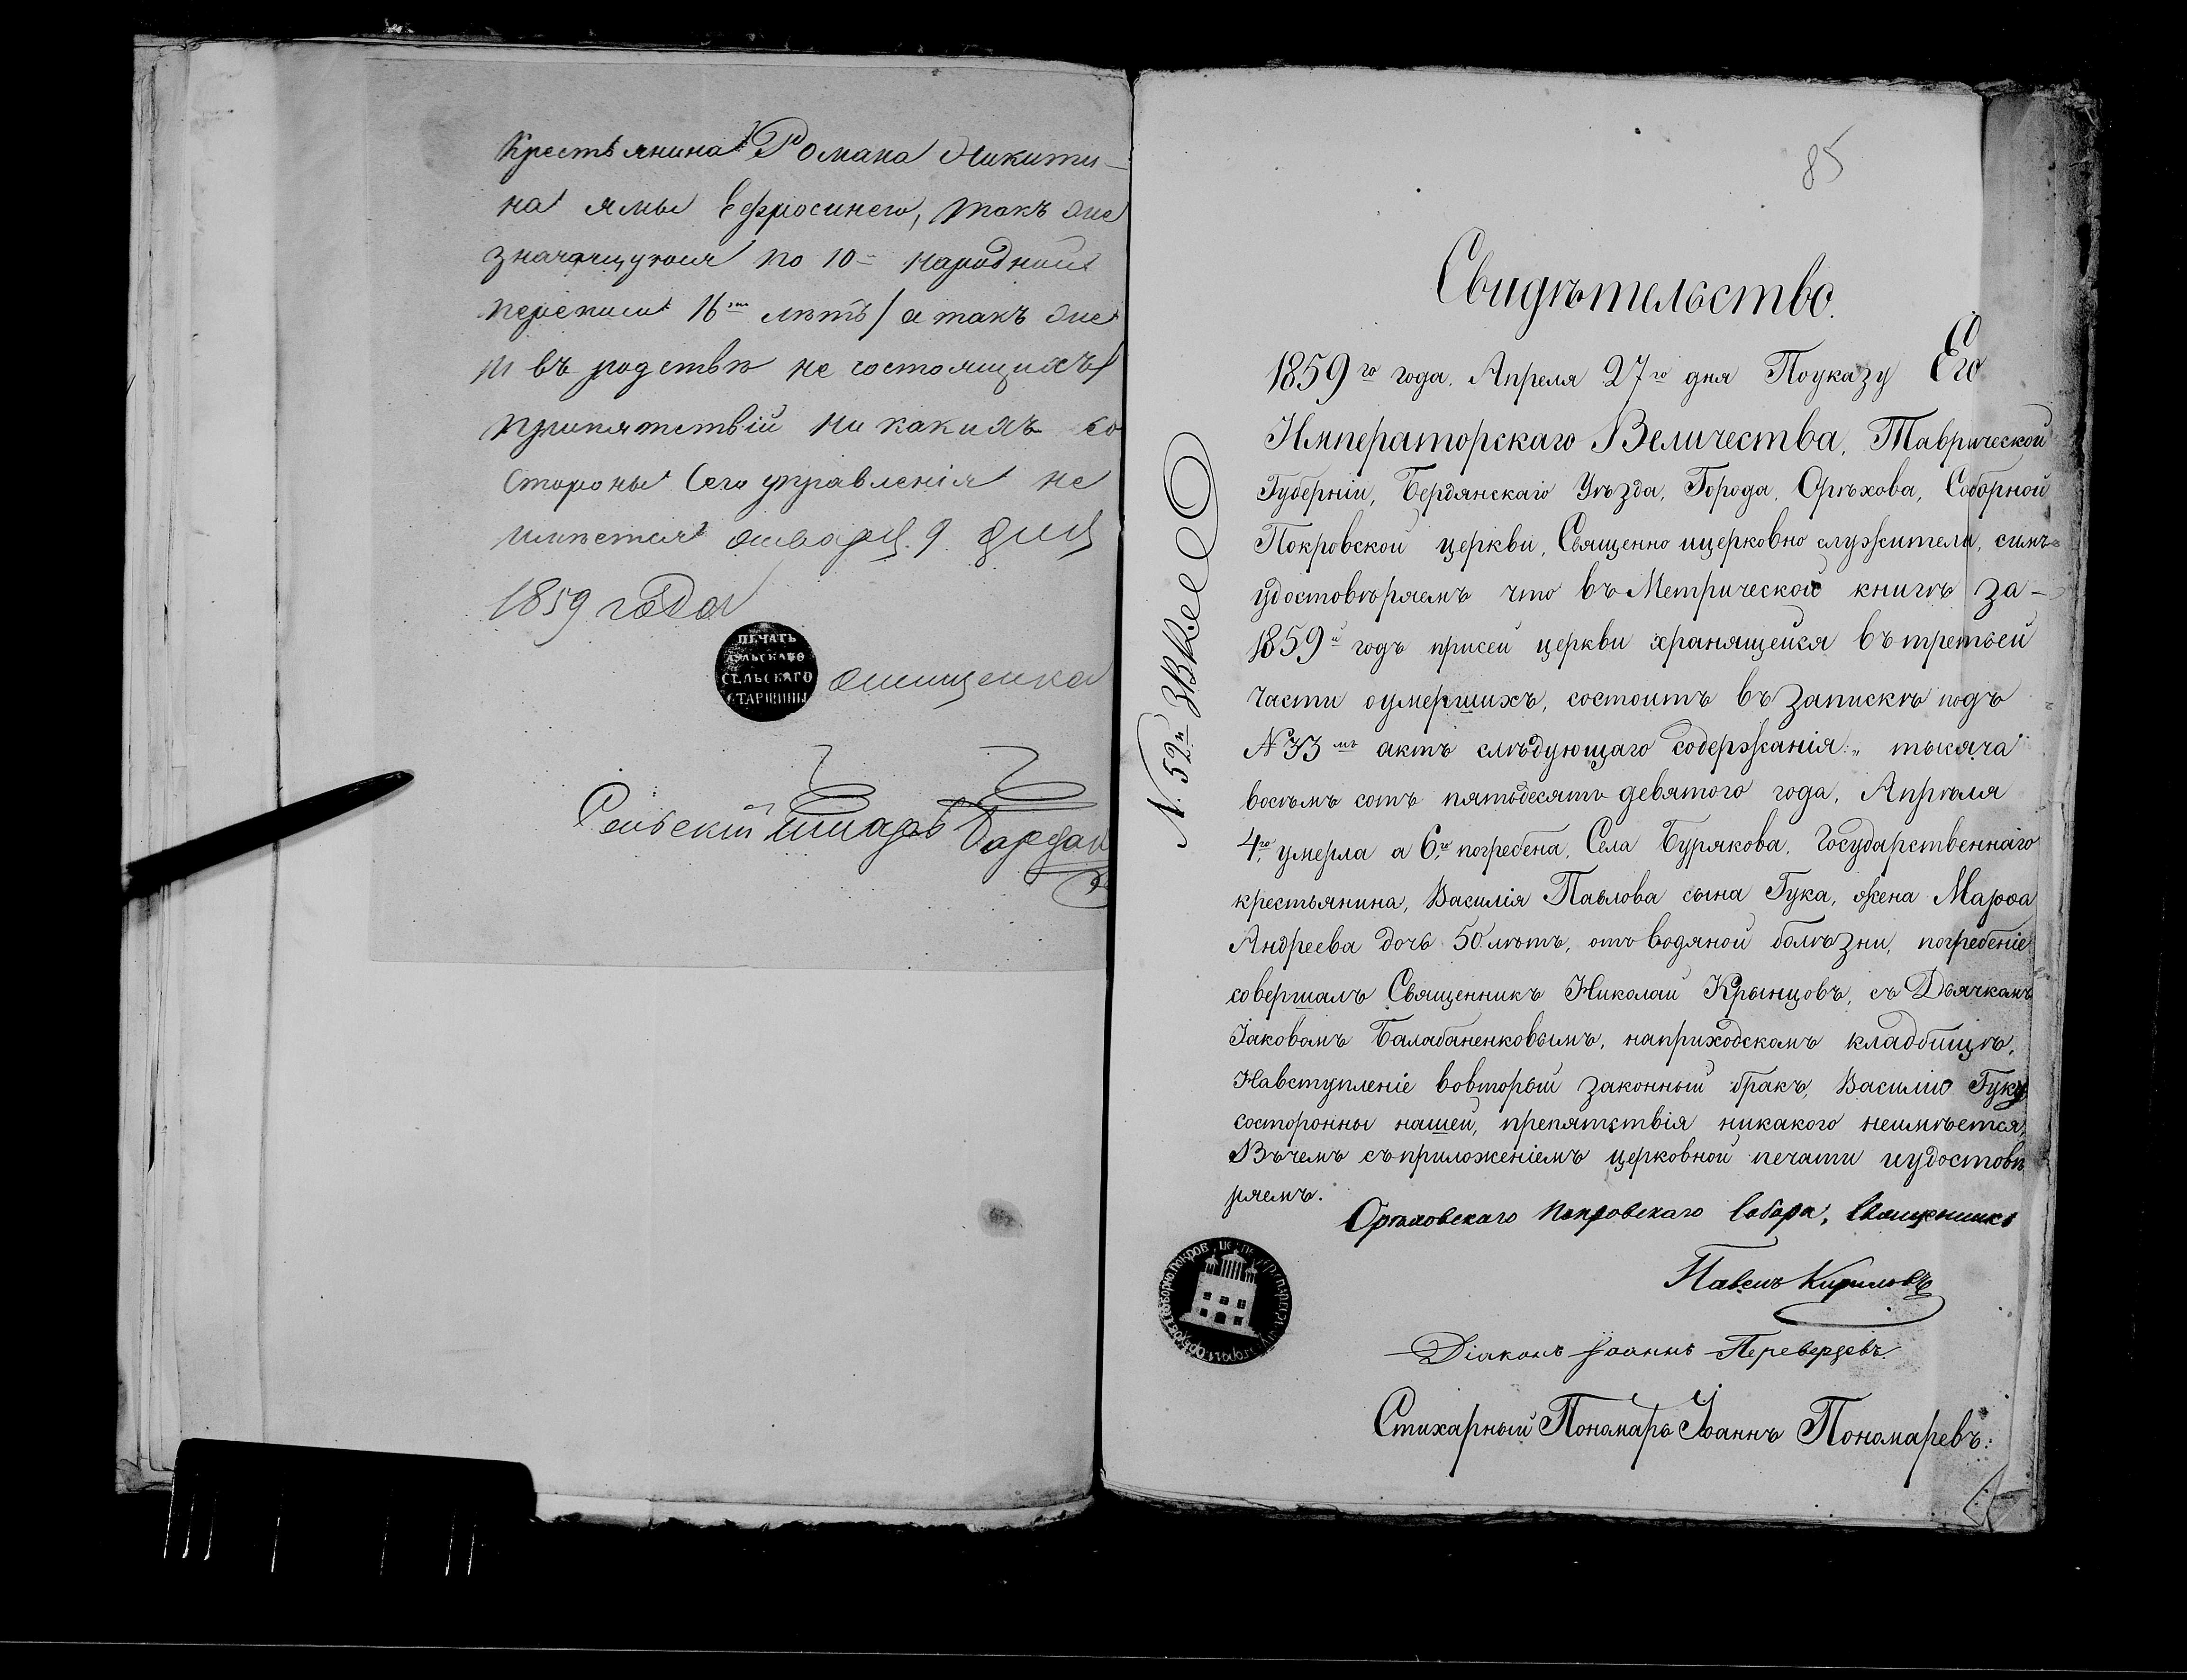 Крестьянина Романа Никити-
на ямы Ефросинею, такъ же
значащуюся по 10й народной
переписи 16ть лѣтъ / а такъ же
и въ родствѣ не состоящихъ /
припятствiй ни какихъ со
стороны сего управленiя не
имѣется января 9 дня
1859 года
ПЕЧАТЬ
СЕЛЬСКАГО
СТАРШИНЫ
Онищенка
Сельскiй писарь
85
Свидѣтельство.
1859го года. Апреля 27го дня Поуказу Его
Императорскаго Величества, Таврической
Губернiи, Бердянскаго Уѣзда, Города, Орѣхова, Соборной
Покровской церкви, Священно ицерковно служители, симъ
удостовѣряемъ что въ Метрической книгѣ за-
1859й годъ присей церкви хранящейся вътретьей
части оумершихъ, состоитъ въ запискѣ подъ
№ 33мъ актъ слѣдующаго содержанiя: „ тысяча
восѣмъ сотъ пятьдесятъ девятого года, Апрѣля
4го, умерла а 6го, погребена, Села Бурякова, Государственнаго
крестьянина, Василiя Павлова сына Гука, жена Марѳа
Андреева дочь 50 лѣтъ, отъ водяной болѣзни, погребенiе
совершалъ Священникъ Николай Крынцовъ, съ Дьячкомъ
Iаковомъ Балабаненковымъ, наприходскомъ кладбищѣ,
Навступленiе вовторый законный бракъ, Василiю Гуку
состоронны нашей, препятствiя никакого неимѣется,
Въчемъ съприложенiемъ церковной печати иудостовѣ
ряемъ.
№ 52й
Орѣховскаго Покровскаго Собора, Священникъ
Павелъ Кириловъ
Дiаконъ Iоаннъ Переверзевъ.
Стихарный Пономарь Iоаннъ Пономаревъ: